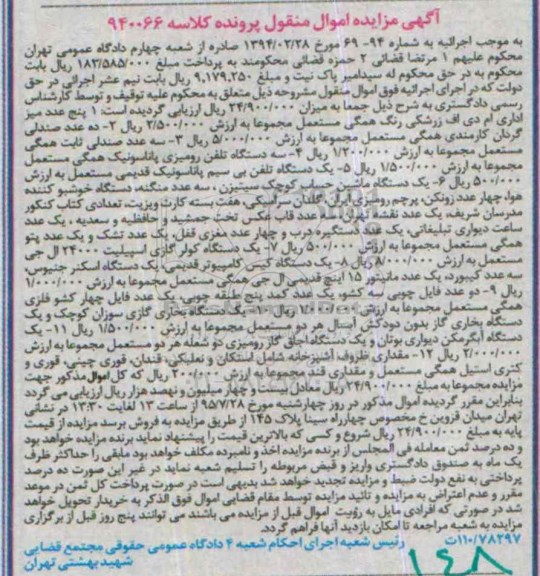 آگهی مزایده اموال منقول پرونده کلاسه ۹۴۰۰۶۶
به موجب اجرائیه به شماره ۹۴- ۶۹ مورخ ۱۳۹۴/۰۲/۲۸ صادره از شعبه چهارم دادگاه عمومی تهران
محکوم علیهم ۱ مرتضا قضائی ۲ حمزه قضائی محکومند به پرداخت مبلغ ۱۸۳/۵۸۵/۰۰۰ ریال بابت
محکوم به در حق محکوم له سیدامیر پاک نیت و مبلغ ۹,۱۷۹,۲۵۰ ریال بابت نیم عشر اجرائی در حق
دولت که در اجرای اجرائیه فوق اموال منقول مشروحه ذیل متعلق به محکوم علیه توقیف و توسط کارشناس
رسمی دادگستری به شرح ذیل جمعا به میزان ۲۴/۹۰۰/۰۰۰ ریال ارزیابی گردیده است: ۱ پنج عدد میز
اداری ام دی اف زرشکی رنگ همگی مستعمل مجموعا به ارزش ۲/۵۰۰/۰۰۰ ریال ۲- ده عدد صندلی
گردان کارمندی همگی مستعمل مجموعا به ارزش ۵/۰۰۰/۰۰۰ ریال ۳- سه عدد صندلی ثابت همگی
مستعمل مجموعا به ارزش ۱/۲۰۰/۰۰۰ ریال ۴- سه دستگاه تلفن رومیزی پاناسونیک همگی مستعمل
مجموعا به ارزش ۱/۵۰۰/۰۰۰ ریال ۵- یک دستگاه تلفن بی سیم پاناسونیک قدیمی مستعمل به ارزش
۵۰۰/۰۰۰ ریال ۶- یک دستگاه ماشین حساب کوچک سیتیزن ، سه عدد منگنه، دستگاه خوشبو کننده
هوا، چهار عدد زونکن، پرچم رومیزی ایران، گلدان سرامیکی، هفت بسته کارت ویزیت، تعدادی کتاب کنکور
مدرسان شریف، یک عدد نقشه تهران، سه عدد قاب عکس تخت جمشید و حافظیه و سعدیه ، یک عدد
ساعت دیواری تبلیغاتی، یک عدد دستگیره درب و چهار عدد مغزی قفل، یک عدد تشک و یک عدد پتو
همگی مستعمل مجموعا به ارزش ۵۰۰/۰۰۰ ریال ۷- یک دستگاه کولر گازی اسپیلیت ۲۴۰۰۰ ال جی
مستعمل به ارزش ۸/۰۰۰/۰۰۰ ریال ۸- یک دستگاه کیس کامپیوتر قدیمی، یک دستگاه اسکنر جنیوس،
سه عدد کیبورد، یک عدد مانیتور ۱۵ اینچ قدیمی ال جی همگی مستعمل مجموعا به ارزش ۱/۰۰۰/۰۰۰
ریال ۹- دو عدد فایل چوبی سه کشو، یک عدد کمد پنج طبقه چوبی، یک عدد فایل چهار کشو فلزی
همگی مستعمل مجموعا به ارزش ریال ۱۰- یک دستگاه بخاری گازی سوزان کوچک و یک
دستگاه بخاری گاز بدون دودکش آبسال هر دو مستعمل مجموعا به ارزش ۱/۵۰۰/۰۰۰ ریال ۱۱- یک
دستگاه آبگرمکن دیواری بوتان و یک دستگاه اجاق گاز رومیزی دو شعله هر دو مستعمل مجموعا به ارزش
۲/۰۰۰/۰۰۰ ریال ۱۲- مقداری ظروف آشپزخانه شامل استکان و نعلبکی، قندان، قوری چینی، قوری و
کتری استیل همگی مستعمل و مقداری قند مجموعا به ارزش ۲۰۰/۰۰۰ ریال که کل اموال مذکور جهت
مزایده مجموعا به مبلغ ۲۴/۹۰۰/۰۰۰ ریال معادل بیست و چهار میلیون و نهصد هزار ریال ارزیابی می گردد
بنابراین مقرر گردیده اموال مذکور در روز چهارشنبه مورخ ۹۵/۷/۲۸ از ساعت ۱۳ لغایت ۱۳:۳۰ در نشانی
تهران میدان قزوین خ مخصوص چهارراه سینا پلاک ۱۴۵ از طریق مزایده به فروش برسد مزایده از قیمت
پایه به مبلغ ۲۴/۹۰۰/۰۰۰ ریال شروع و کسی که بالاترین قیمت را پیشنهاد نماید برنده مزایده خواهد بود
و ده درصد ثمن معامله فی المجلس از برنده مزایده اخذ و نامبرده مکلف خواهد بود مابقی را حداکثر ظرف
یک ماه به صندوق دادگستری واریز و قبض مربوطه را تسلیم شعبه نماید در غیر این صورت ده درصد
پرداختی به نفع دولت ضبط و مزایده تجدید خواهد شد بدیهی است در صورت پرداخت کل ثمن در موعد
مقرر و عدم اعتراض به مزایده و تائید مزایده توسط مقام قضایی اموال فوق الذکر به خریدار تحویل خواهد
شد در صورتی که افرادی مایل به رؤیت اموال قبل از مزایده می باشند می توانند پنج روز قبل از برگزاری
مزایده به شعبه مراجعه تا امکان بازدید آنها فراهم گردد.
۱۱۰/۷۸۲۹۷ت رئیس شعبه اجرای احکام شعبه ۴ دادگاه عمومی حقوقی مجتمع قضایی
شهید بهشتی تهران
۱۴۸